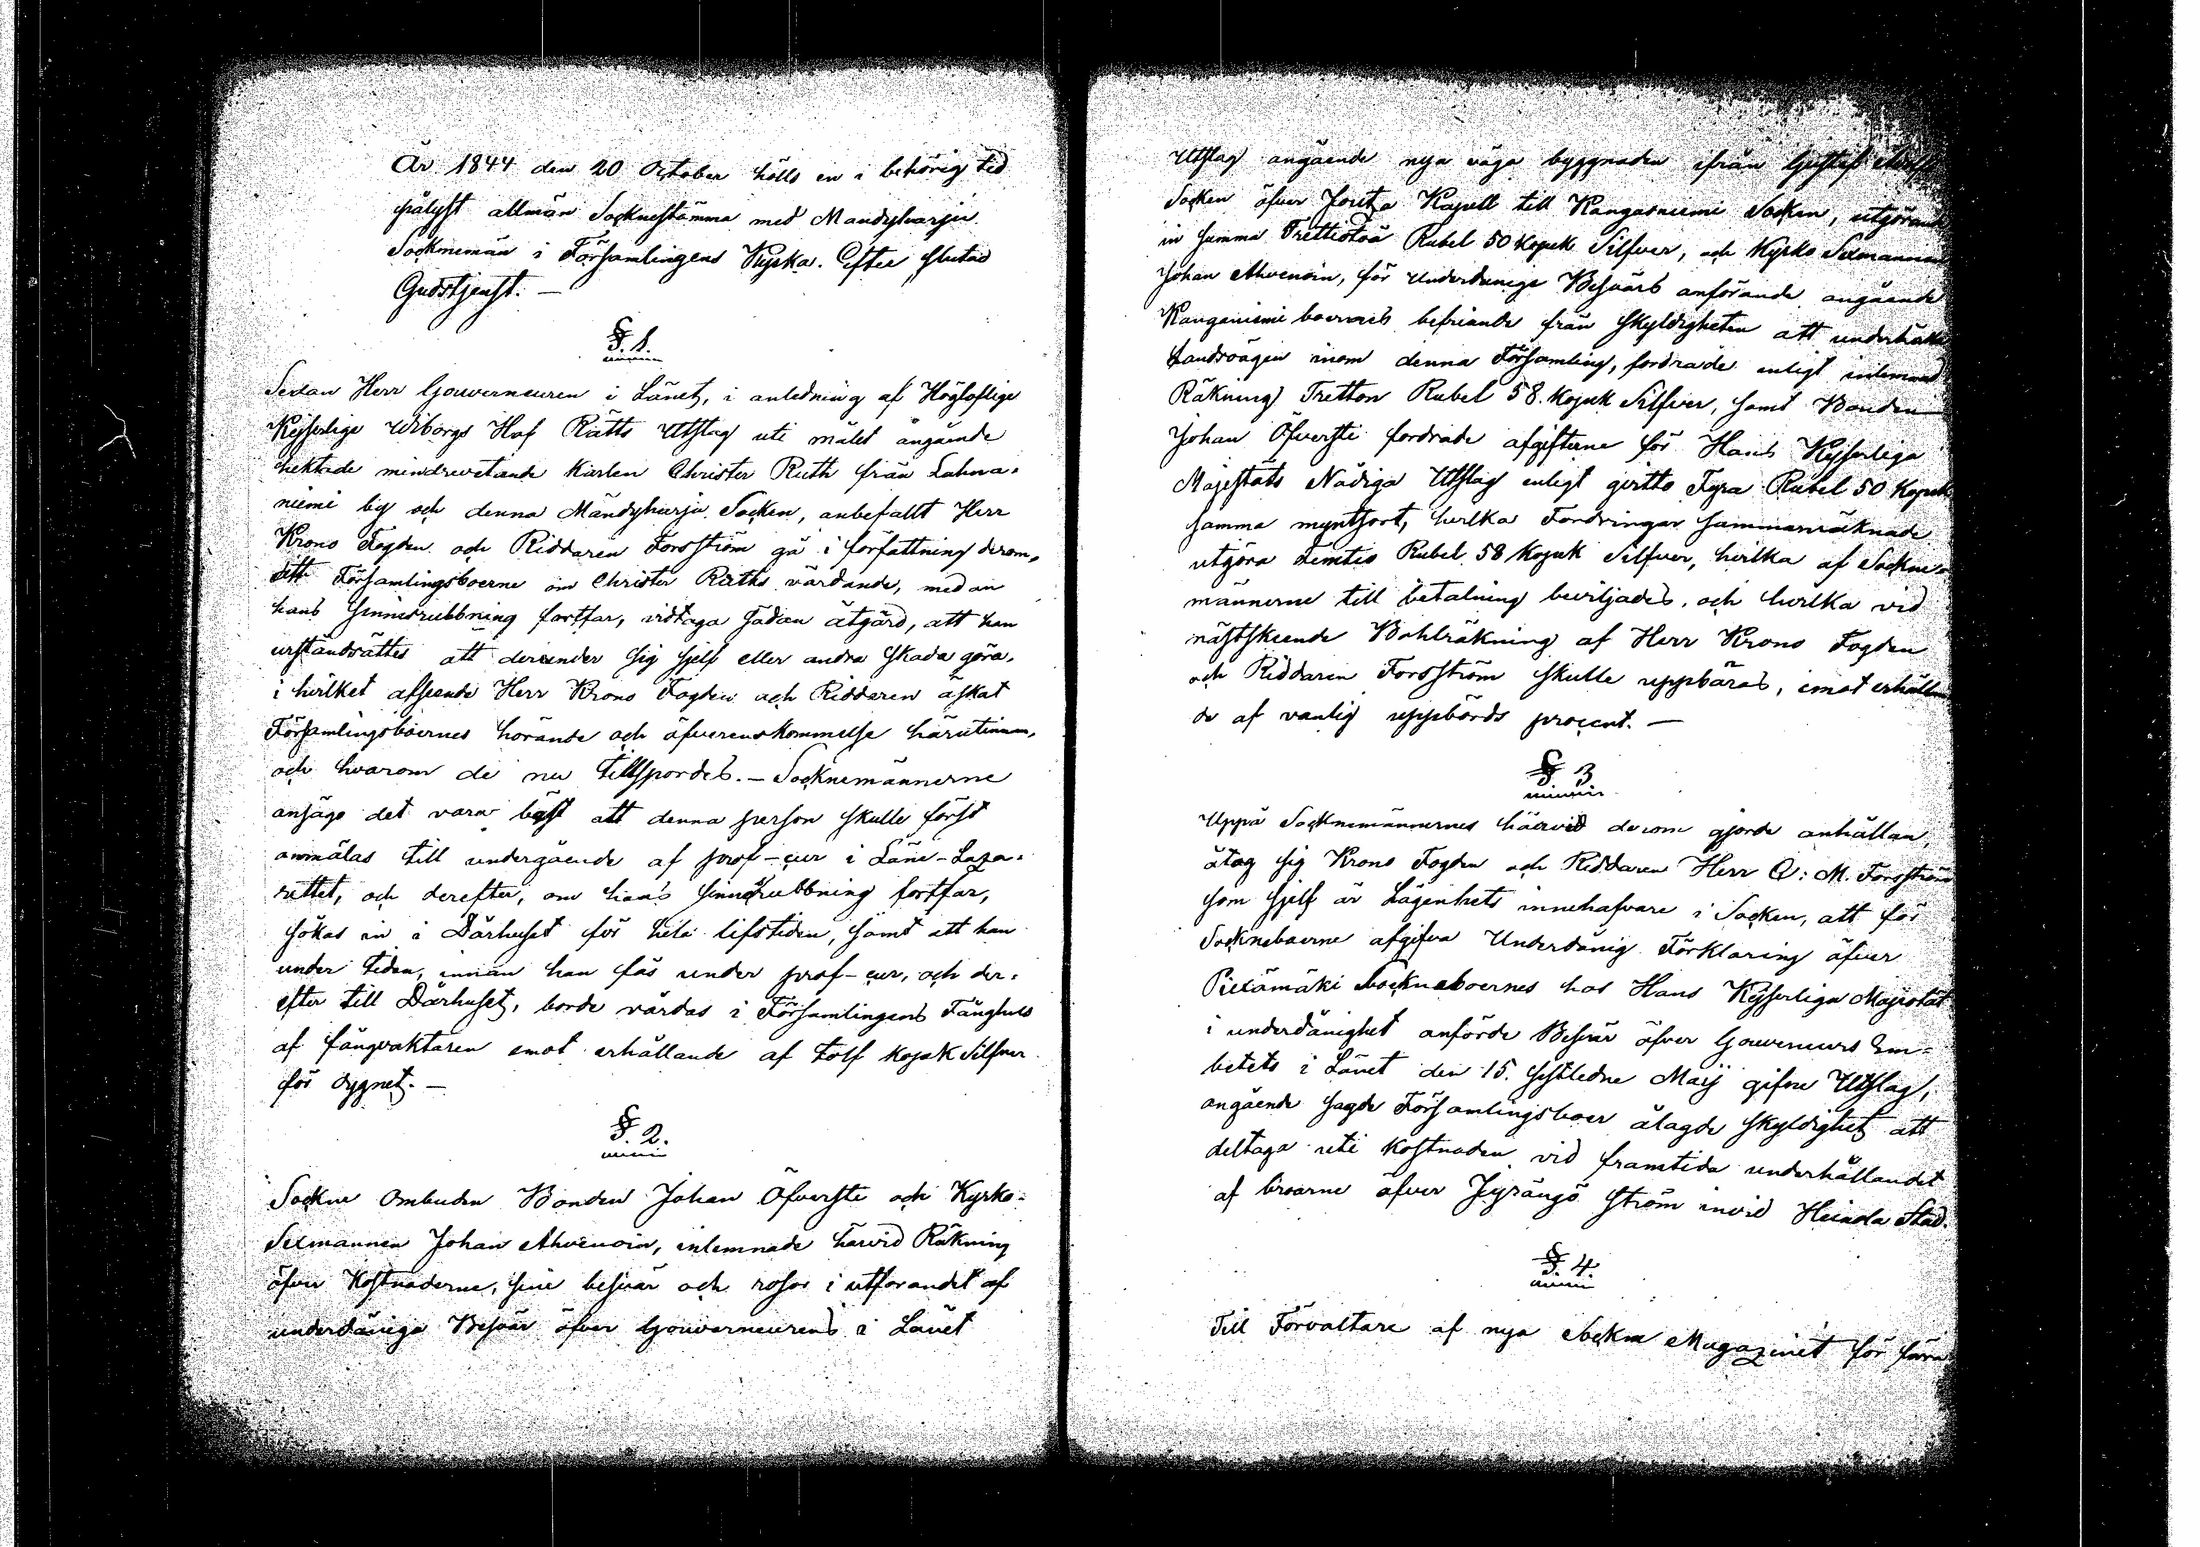 År 1844 den 20 October hölls en i behörig tid
pålyst allmän Socknestämma med Mändyharju
Socknemän i Församlingens Kyrka. Efter slutad
Gudstjenst. —
§. 1.
Sedan Herr Gouverneuren i Länet, i anledning af Högloflige
Kejserlige Wiborgs Hof Rätts Utslag uti målet angående
häktade mindrevetande Karlen Christer Ruth från Lahna-
niemi by och denna Mändyharju Socken, anbefallt Herr
Krono Fogden och Riddaren Forsström gå i författning derom,
att Församlingsboerne om Christer Ruths vårdande, medan
hans sinnesrubbning fortfar, vidtaga sådan åtgärd, att han
urståndsättes att derunder sig sjelf eller andra skada göra,
i hvilket afseende Herr Krono Fogden och Riddaren äskat
Församlingsboernes hörande och öfverenskommelse härutinnan,
och hvarom de nu tillspordes. — Socknemännerne
ansågo det vara bäst att denna person skulle först
anmälas till undergående af prof-cur i Läns-Laza-
rettet, och derefter, om hans sinnesrubbning fortfar,
sökas in i Dårhuset för hela lifstiden, samt att han
under tiden, innan han fås under prof-cur, och der-
efter till Dårhuset, borde vårdas i Församlingens Fånghus
af fångvaktaren emot erhållande af Tolf kopek Silfver
för dygnet. —
§. 2.
Sockne Ombuden Bonden Johan Öfverste och Kyrko-
Sexmannen Johan Ahvenain, inlemnade härvid Räkning
öfver Kostnaderne, sine besvär och resor i utförandet af
underdåniga Besvär öfver Gouverneurens i Länet
Utslag angående nya väga byggnaden ifrån Gustaf
Socken öfver Joutza Kapell till Kangasniemi Socken, utgörande
in summa Trettiotvå Rubel 50 kopek Silfver, och Kyrko Sexmannen
Johan Ahvenain, för Underdåniga Besvärs anförande angående
Kangasniemi boernes befriande från skyldigheten att underhålla
Landsvägen inom denna Församling, fordrade enligt inlemnad
Räkning Tretton Rubel 58. kopek Silfver, samt Bonden
Johan Öfverste fordrade afgifterne för Hans Kejserliga
Majestäts Nådiga Utslag enligt qvitto Fyra Rubel 50 kopek
samma myntsort, hvilka Fordringar sammanräknade
utgöra Femtio Rubel 58 kopek Silfver, hvilka af Sockne-
männerne till betalning beviljades, och hvilka vid
nästskeende Bohlräkning af Herr Krono Fogden
och Riddaren Forsström skulle uppbäras, emot erhållan
de af vanlig uppbörds procent. —
§. 3.
Uppå Socknemännernes härvid derom gjorde anhållan,
åtog sig Krono Fogden och Riddaren Herr Q: M. Forsström
som sjelf är Lägenhets innehafvare i Socken, att för
Sockneboerne afgifva Underdånig Förklaring öfver
Pieksämäki Sockneboernes hos Hans Kejserliga Majestät
i underdånighet anförde Besvär öfver Gouverneurs Em-
betets i Länet den 15. sistledne Maij gifne Utslag,
angående sagde Församlingsboer ålagde skyldighet att
deltaga uti kostnaden vid framtida underhållandet
af broarne öfver Jyrängö ström invid Heinola Stad.
§. 4.
Till Förvaltare af nya Sockne Magazinet för